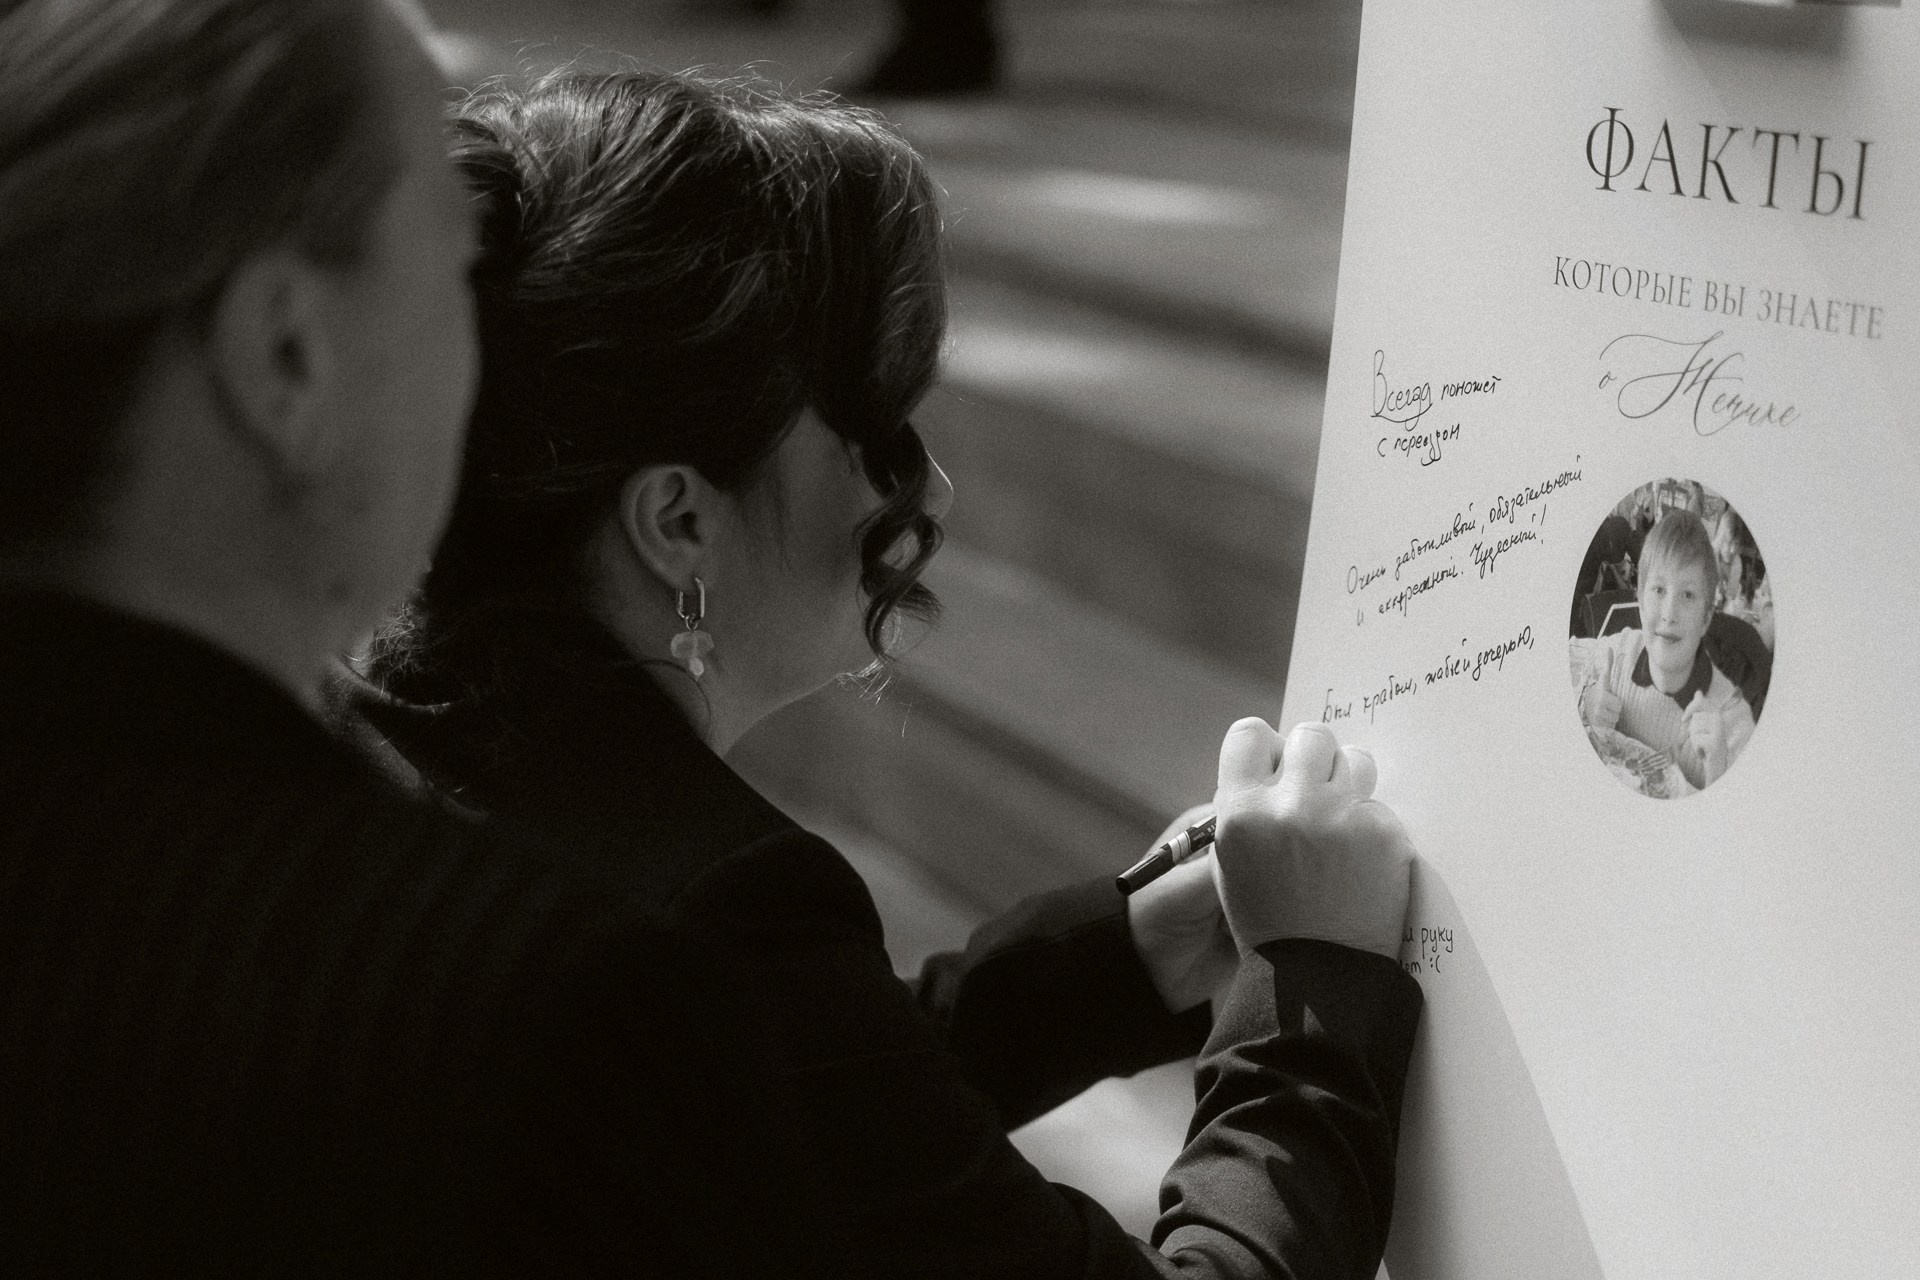 ФАКТЫ
КОТОРЫЕ ВЫ ЗНАЕТЕ
о Женихе
Всегда поможет
с переездом
Очень заботливый, обязательный
и аккуратный. Чудесный!
Был крабом, жабьей дочерью,
руку
:(